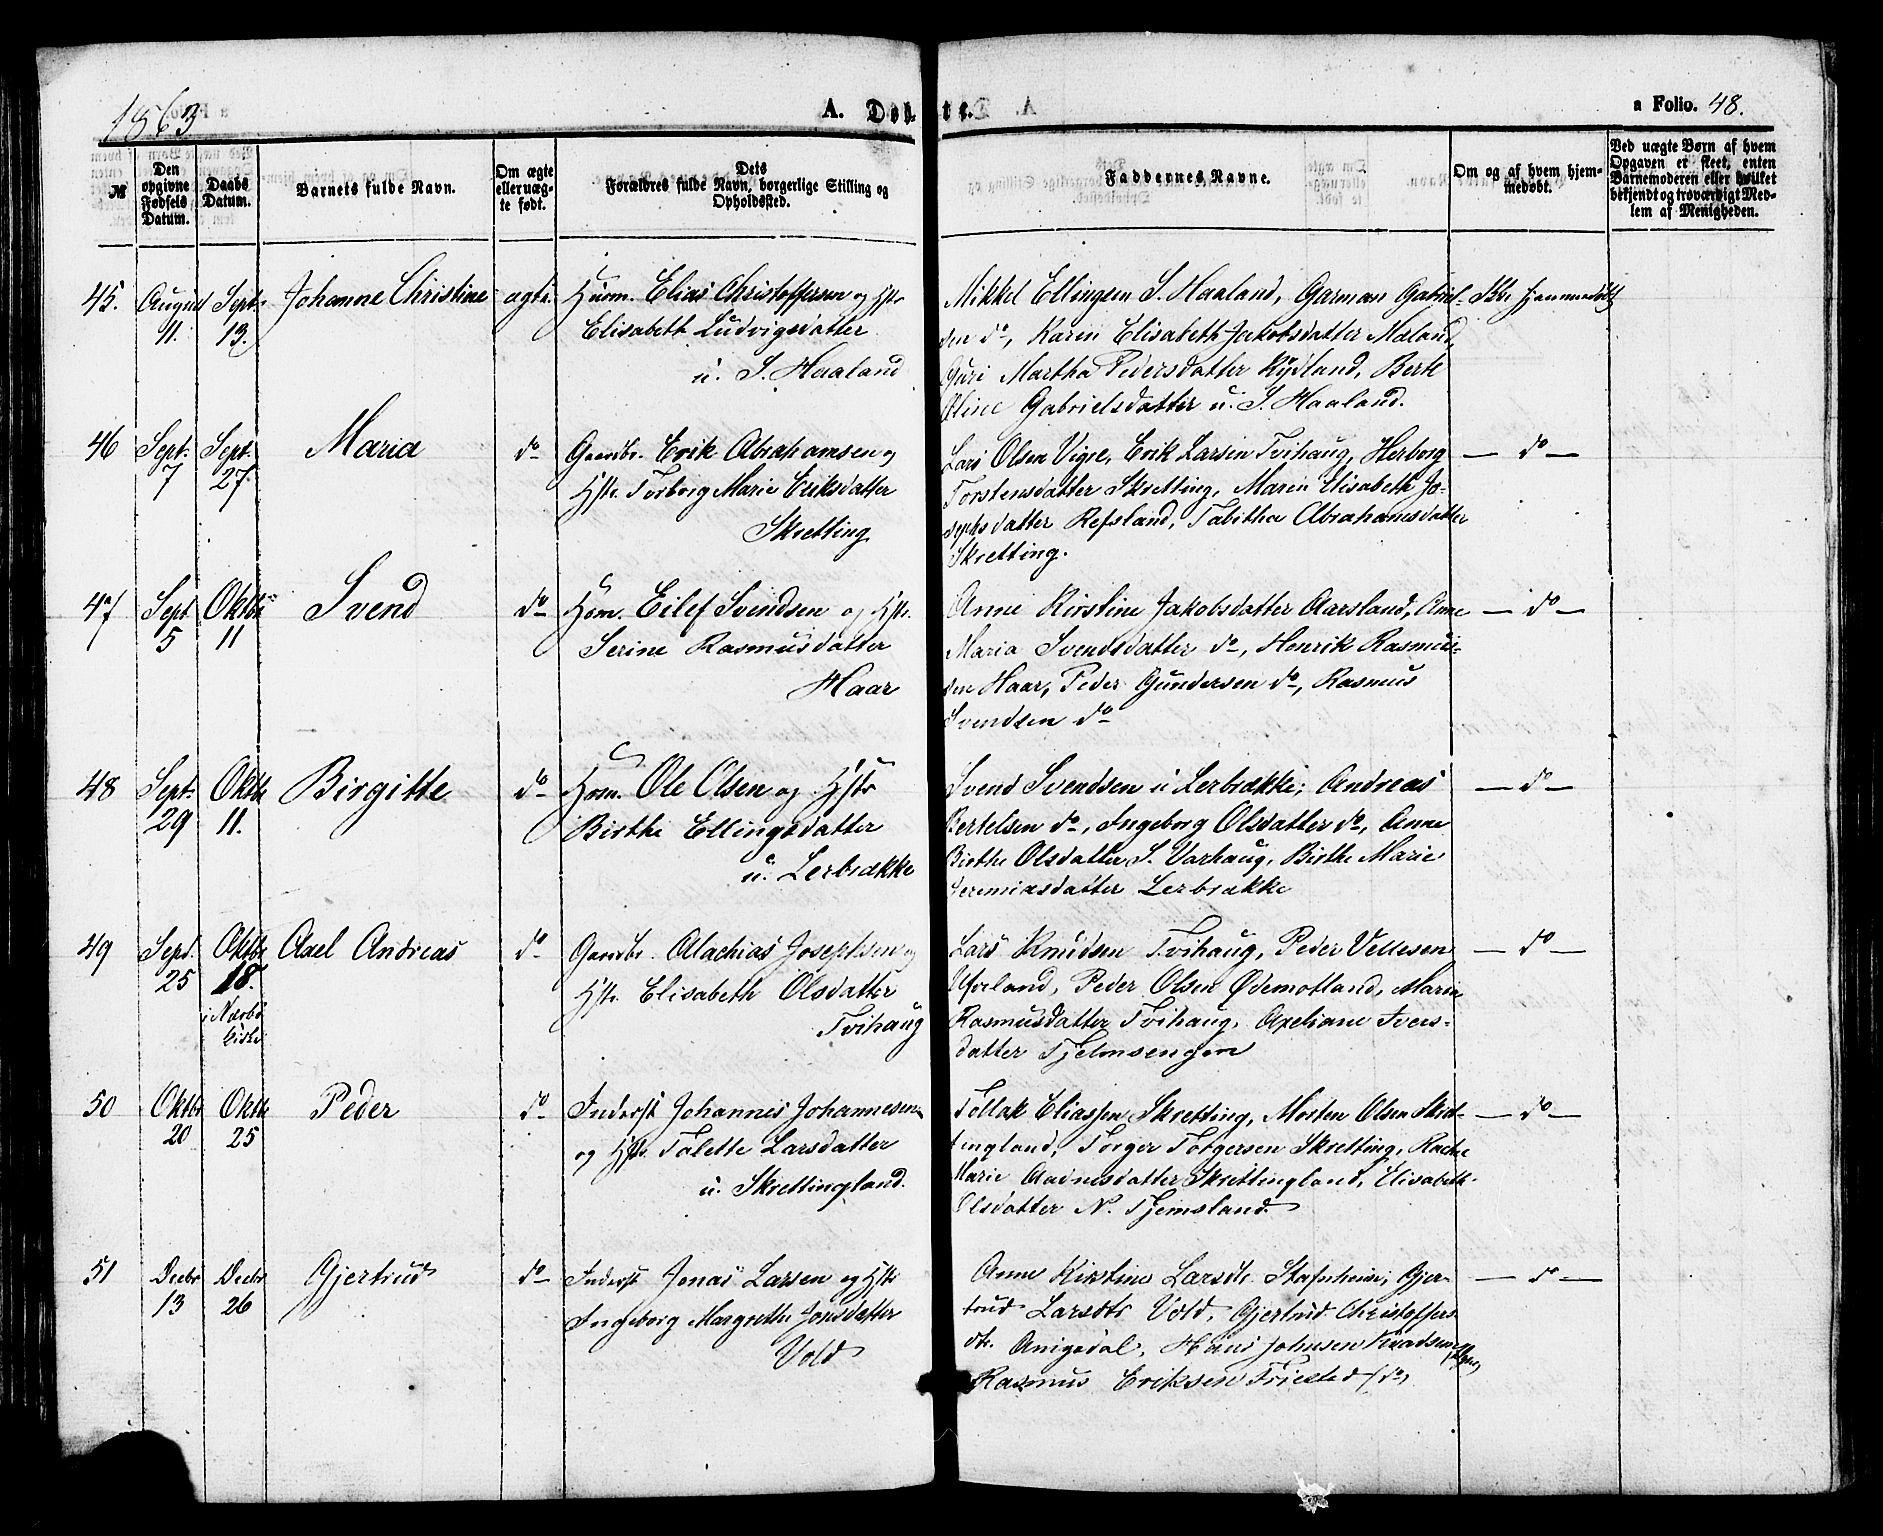 1863
A. Døbte.
a Folio. 48.
№
Den opgivne Fødsels Datum.
Daabs Datum.
Barnets fulde Navn.
Om ægte eller uægte født.
Dets Forældres fulde Navn, borgerlige Stilling og Opholdssted.
Faddernes Navne.
Om og af hvem hjemmedøbt.
Ved uægte Børn af hvem Opgaven er skeet, enten Barnemoderen eller hvilket bekjendt og troværdigt Medlem af Menigheden.
45. August 11. Sept. 13. Johanne Christine ægte.
Huusm. Elias Christoffersen og Hstr
Elisabeth Ludvigsdatter
u. S. Haaland
Mikkel Ellingsen S. Haaland, Garman Gabriel-
sen do, Karen Elisabeth Jakobsdatter Mæland,
Guri Martha Pedersdatter Rydland, Berte
Oline Gabrielsdatter u. S. Haaland.
Ikke hjemmedøbt
46 Sept. 7 Sept. 27. Maria do
Gaardbr. Erik Abrahamsen og
Hstr. Torborg Marie Eriksdatter
Skretting
Lars Olsen Vigre, Erik Larsen Tvihaug, Herborg
Torstensdatter Skretting, Maren Elisabeth Jo-
sephsdatter Refsland, Tabitha Abrahamsdatter
Skretting.
— do —
47 Sept 5 Oktbr 11 Svend do
Hsm. Eilef Svendsen og Hstr.
Serine Rasmusdatter
Haar
Anne Kirstine Jakobsdatter Aarsland, Anne
Maria Svendsdatter do, Henrik Rasmus-
sen Haar, Peder Gundersen do, Rasmus
Svendsen do
— do —
48 Sept. 29 Oktb 11. Birgitte do
Hsm. Ole Olsen og Hstr
Birthe Ellingsdatter
u. Lerbrække
Svend Svendsen u Lerbrække, Andreas
Bertelsen do, Ingeborg Olsdatter do, Anne
Birthe Olsdatter S. Varhaug, Birthe Marie
Jeremiasdatter Lerbrække
— do —
49 Sept. 25 Oktbr 18. i Nærbø Kirke Axel Andreas do
Gaardbr. Malachias Josephsen og
Hstr. Elisabeth Olsdatter
Tvihaug
Lars Knudsen Tvihaug, Peder Vellesen
Ueland, Peder Olsen Ødemotland, Maria
Rasmusdatter Tvihaug, Axeliane Ivers-
datter Tjelmsengen
— do —
50 Oktbr 20 Oktb 25 Peder do
Inderst Johannes Johannesen
og Hstr. Tolette Larsdatter
u. Skrettingland.
Tollak Eliassen Skretting, Morten Olsen Skret-
tingland, Torger Torgersen Skretting, Rachel
Marie Aadnesdatter Skrettingland, Elisabeth
Olsdatter N. Tjemsland
— do —
51 Decbr 13 Decbr 26 Gjertrud do
Inderst Jonas Larsen og Hstr
Ingeborg Margrethe Jonsdatter
Vold
Anne Kirstine Larsdtr. Stafnheim, Gjer-
trud Larsdtr Vold, Gjertrud Christoffers
dtr. Anigsdal, Hans Johnsen Kvadsem
Rasmus Eriksen Friestad (do)
— do —